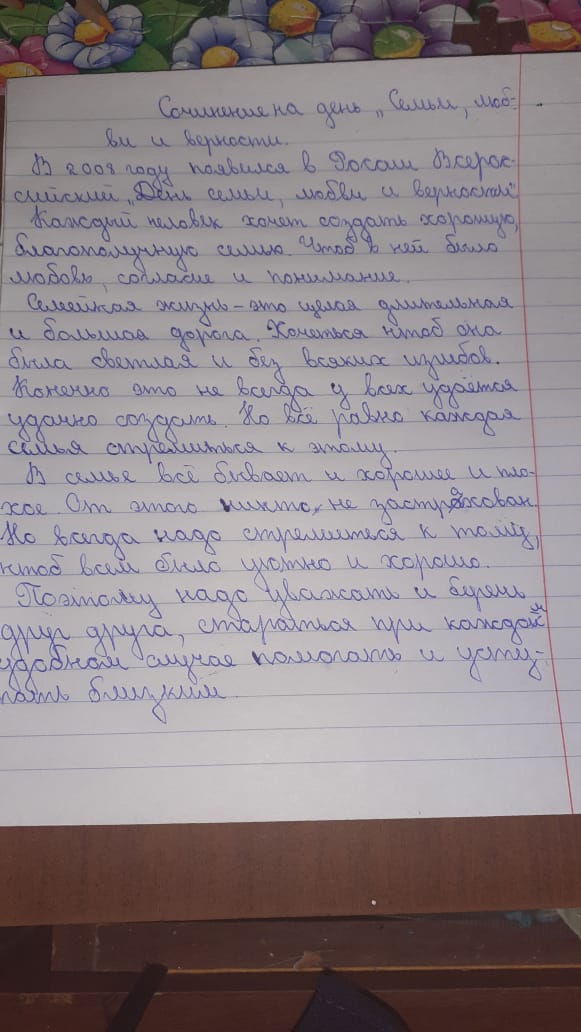 Сочинение на день „Семьи, люб-
ви и верности.
В 2008 году появился в Росии Всерос-
сийский „День семьи, любви и верности"
Каждый человек хочет создать хорошую,
благополучную семью. Чтоб в ней было
любовь, согласие и понимание.
Семейная жизнь – это целая длительная
и большая дорога. Хочеться чтоб она
была светлая и без всяких изгибов.
Конечно это не всегда у всех удаётся
удачно создать. Но всё равно каждая
семья стремиться к этому.
В семье всё бывает и хорошее и пло-
хое. От этого никто не застрахован.
Но всегда надо стремиться к тому,
чтоб всем было уютно и хорошо.
Поэтому надо уважать и беречь
друг друга, стараться при каждом
удобном случае помогать и усту-
пать близким.